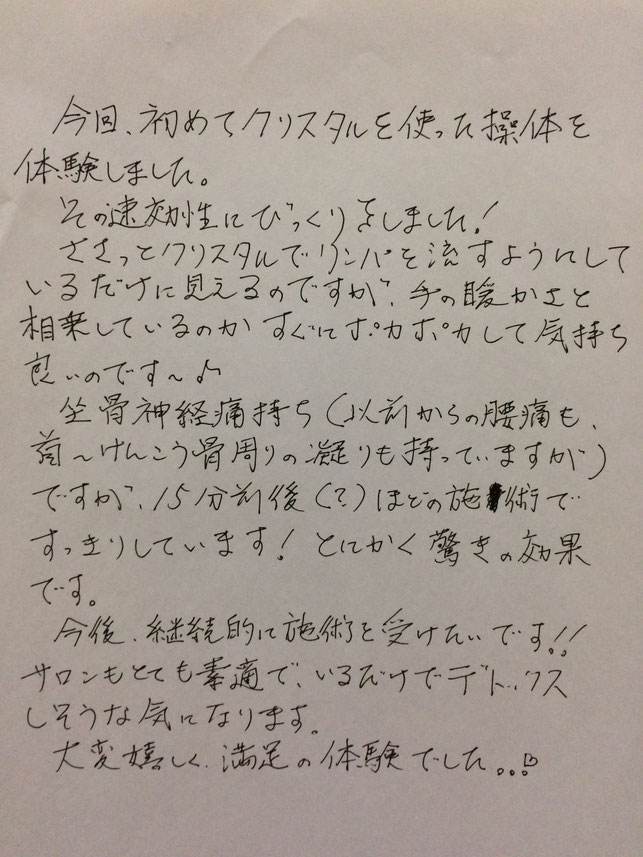 今回、初めてクリスタルを使った操体を
体験しました。
その速効性にびっくりをしました!
ささっとクリスタルでリンパを流すようにして
いるだけに見えるのですが、手の暖かさと
相乗しているのかすぐにポカポカして気持ち
良いのです〜♪
坐骨神経痛持ち(以前からの腰痛も、
首〜けんこう骨周りの凝りも持っていますが)
ですが、15分前後(?)ほどの施術で
すっきりしています!とにかく驚きの効果
です。
今後、継続的に施術を受けたいです!!
サロンもとても素適で、いるだけでデトックス
しそうな気になります。
大変嬉しく、満足の体験でした。。。♡